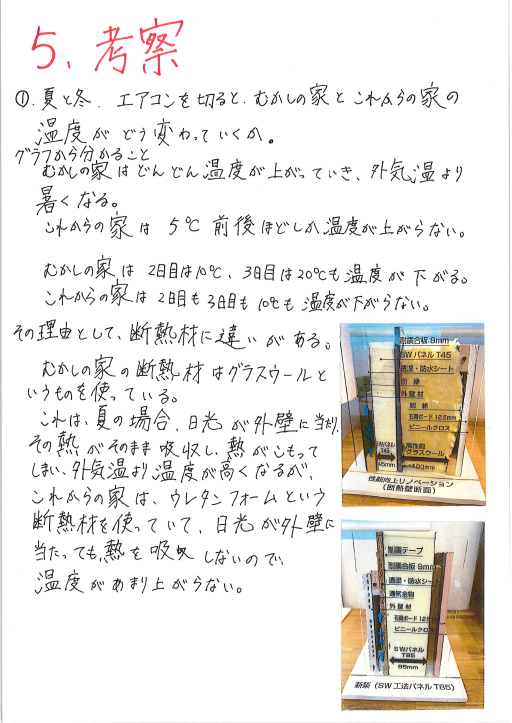 5、考察
①.夏と冬、エアコンを切ると、むかしの家とこれからの家の
温度がどう変わっていくか。
グラフから分かること
むかしの家はどんどん温度が上がっていき、外気温より
暑くなる。
これからの家は5℃前後ほどしか温度が上がらない。
むかしの家は2日目は10℃、3日目は20℃も温度が下がる。
これからの家は2日目も3日目も10℃も温度が下がらない。
その理由として、断熱材に違いがある。
むかしの家の断熱材はグラスウールと
いうものを使っている。
これは、夏の場合、日光が外壁に当たり、
その熱がそのまま吸収し、熱がこもって
しまい、外気温より温度が高くなるが、
これからの家は、ウレタンフォームという
断熱材を使っていて、日光が外壁に
当たっても熱を吸収しないので
温度があまり上がらない。
耐震合板 9mm
SWパネル T45
透湿・防水シート
胴縁
外壁材
胴縁
石膏ボード 12.5mm
ビニールクロス
SWパネル
T45
45mm
高性能
グラスウール
100mm
性能向上リノベーション
(断熱壁断面)
制震テープ
耐震合板 9mm
透湿・防水シート
通気金物
外壁材
石膏ボード 12.5
ビニールクロス
SWパネル
T85
85mm
新築(SW工法パネルT85)